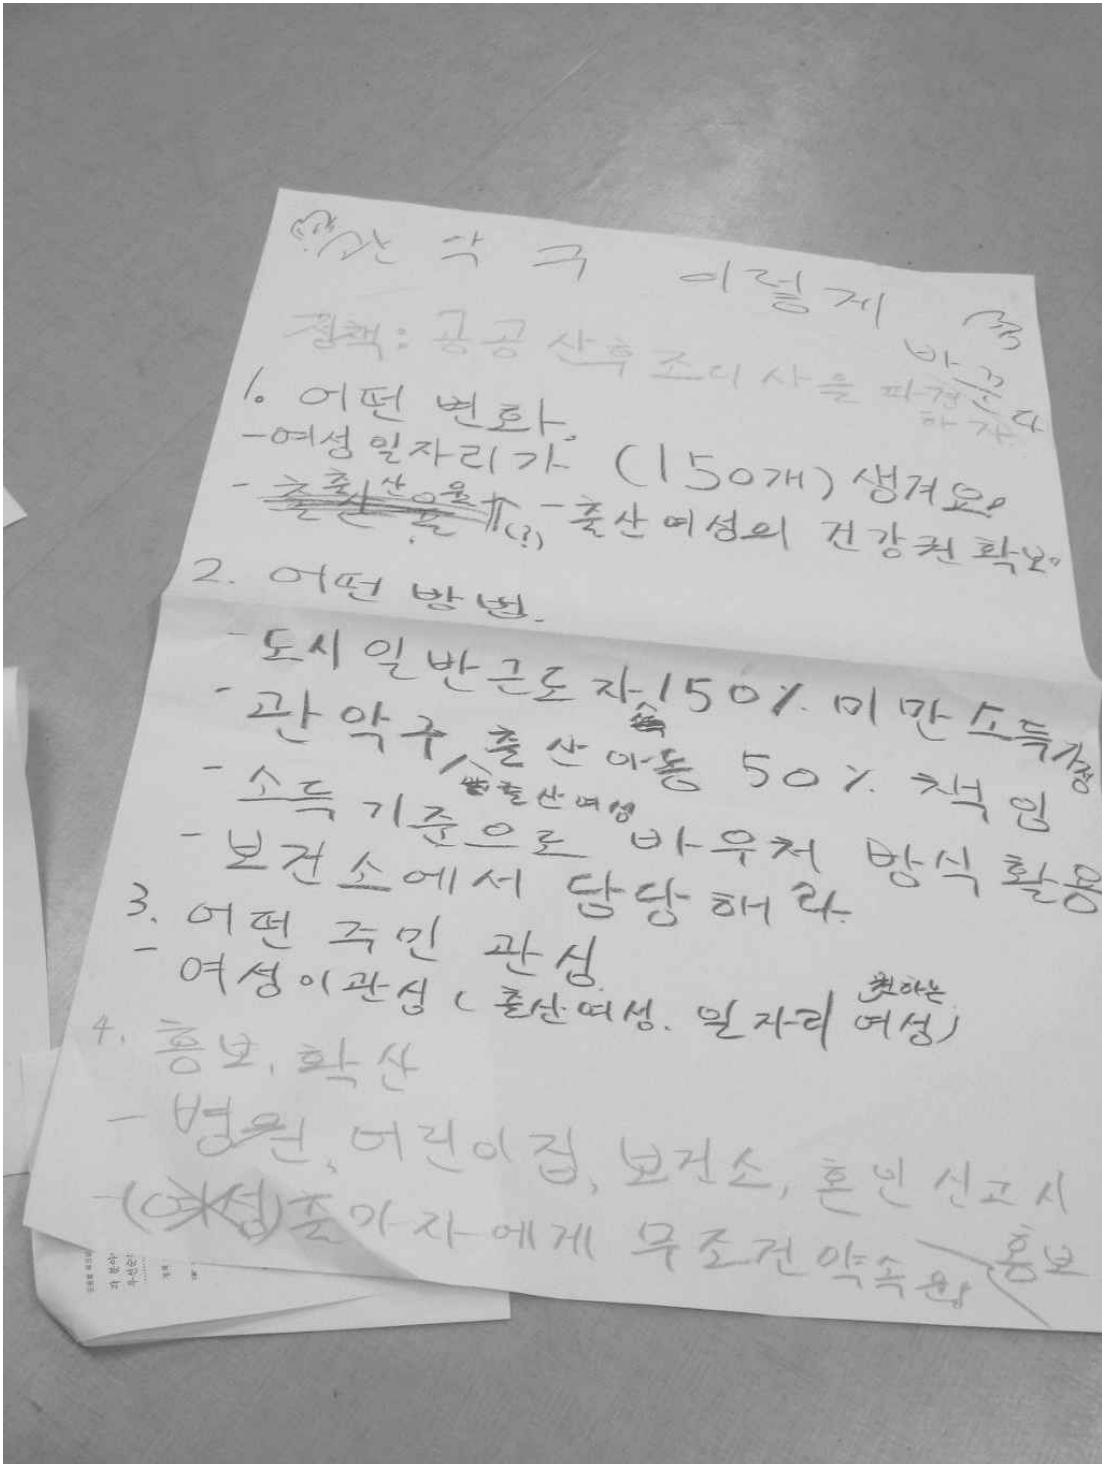 관악구 이렇게 바꾼다
정책: 공공 산후조리사을 파견하자
1. 어떤 변화.
- 여성일자리가 (150개) 생겨요!
- 출산율⇑(?) - 출산여성의 건강권 확보.
2. 어떤 방법.
- 도시일반근도자 150% 미만 소득가정
- 관악구 출산여성 출산아동 50% 책임
- 소득기준으로 바우처 방식 활용
- 보건소에서 담당해라.
3. 어떤 주민 관심
- 여성이관심 (출산여성. 일자리 원하는 여성)
4. 홍보, 확산
- 병원, 어린이집, 보건소, 혼인신고시 홍보
- (여성)출마자에게 무조건약속